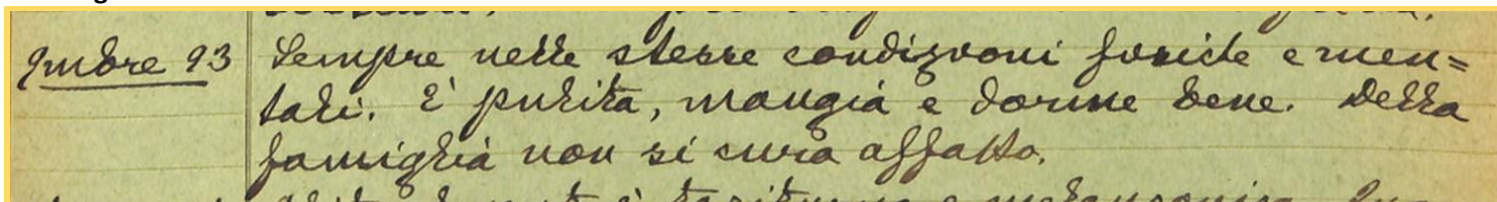 9mbre 93 Sempre nelle stesse condizioni fisiche e men=
tali. È pulita, mangia e dorme bene. Della
famiglia non si cura affatto.
è taciturna e melanconica.